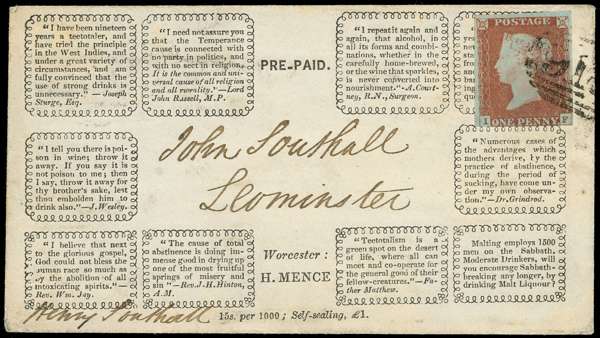 "I have been nineteen
years a teetotaler, and
have tried the principle
in the West Indies, and
under a great variety of
circumstances, and I am
fully convinced that the
use of strong drinks is
unnecessary." — Joseph
Sturge, Esq.
"I need not assure you
that the Temperance
cause is connected with
no party in politics, and
with no sect in religion.
It is the common and uni-
versal cause of all religion
and all morality."—Lord
John Russell, M.P.
PRE-PAID.
"I repeat it again and
again, that alcohol, in
all its forms and com-
binations, whether in the
carefully home-brewed,
or the wine that sparkles,
is never converted into
nourishment."-A. Court-
ney, R.N., Surgeon.
POSTAGE
I F
ONE PENNY
"I tell you there is poi-
son in wine; throw it
away. If you say it is
not poison to me; then
I say, throw it away for
thy brother's sake, lest
thou embolden him to
drink also."—J. Wesley.
John Southall
Leominster
"Numerous cases of
the advantages which
mothers derive, by the
practice of abstinence,
during the period of
suckling, have come un-
der my own observa-
tion."—Dr. Grindrod.
"I believe that next
to the glorious gospel,
God could not bless the
human race so much as
by the abolition of all
intoxicating spirits."—
Rev. Wm. Jay.
"The cause of total
abstinence is doing im-
mense good in drying up
one of the most fruitful
springs of misery and
sin"—Rev. J. H. Hinton,
A.M.
Worcester:
H. MENCE
"Teetotalism is a
green spot on the desert
of life, where all can
meet and co-operate for
the general good of their
fellow-creatures."—Fa-
ther Matthew.
Malting employs 1500
men on the Sabbath.
Moderate Drinkers, will
you encourage Sabbath-
breaking any longer, by
drinking Malt Liquour?
Henry Southall
15s. per 1000; Self-sealing, £1.